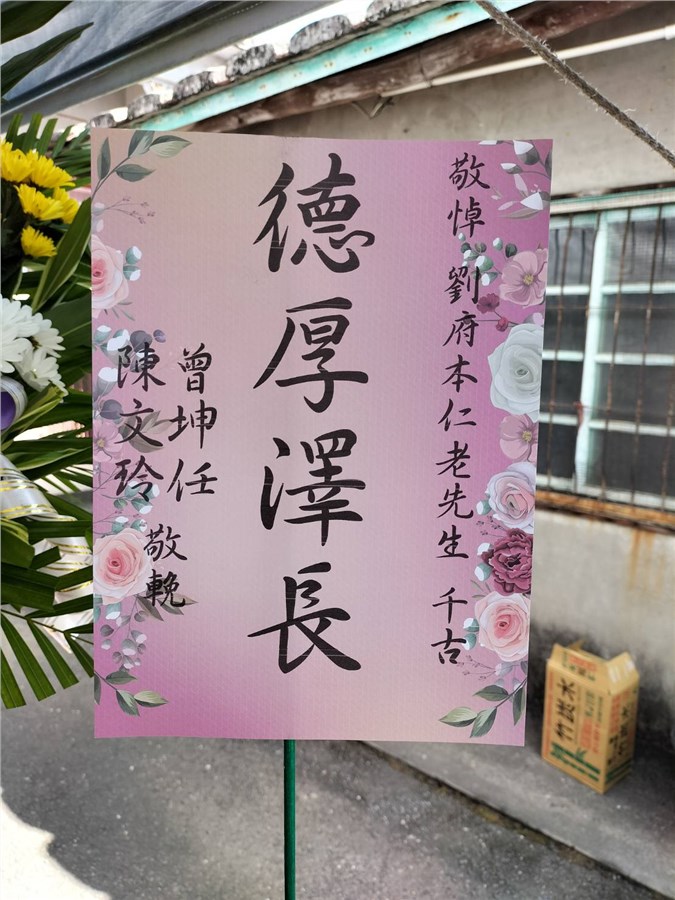 敬悼 劉府本仁老先生 千古
德厚澤長
曾坤任
陳文玲
敬輓